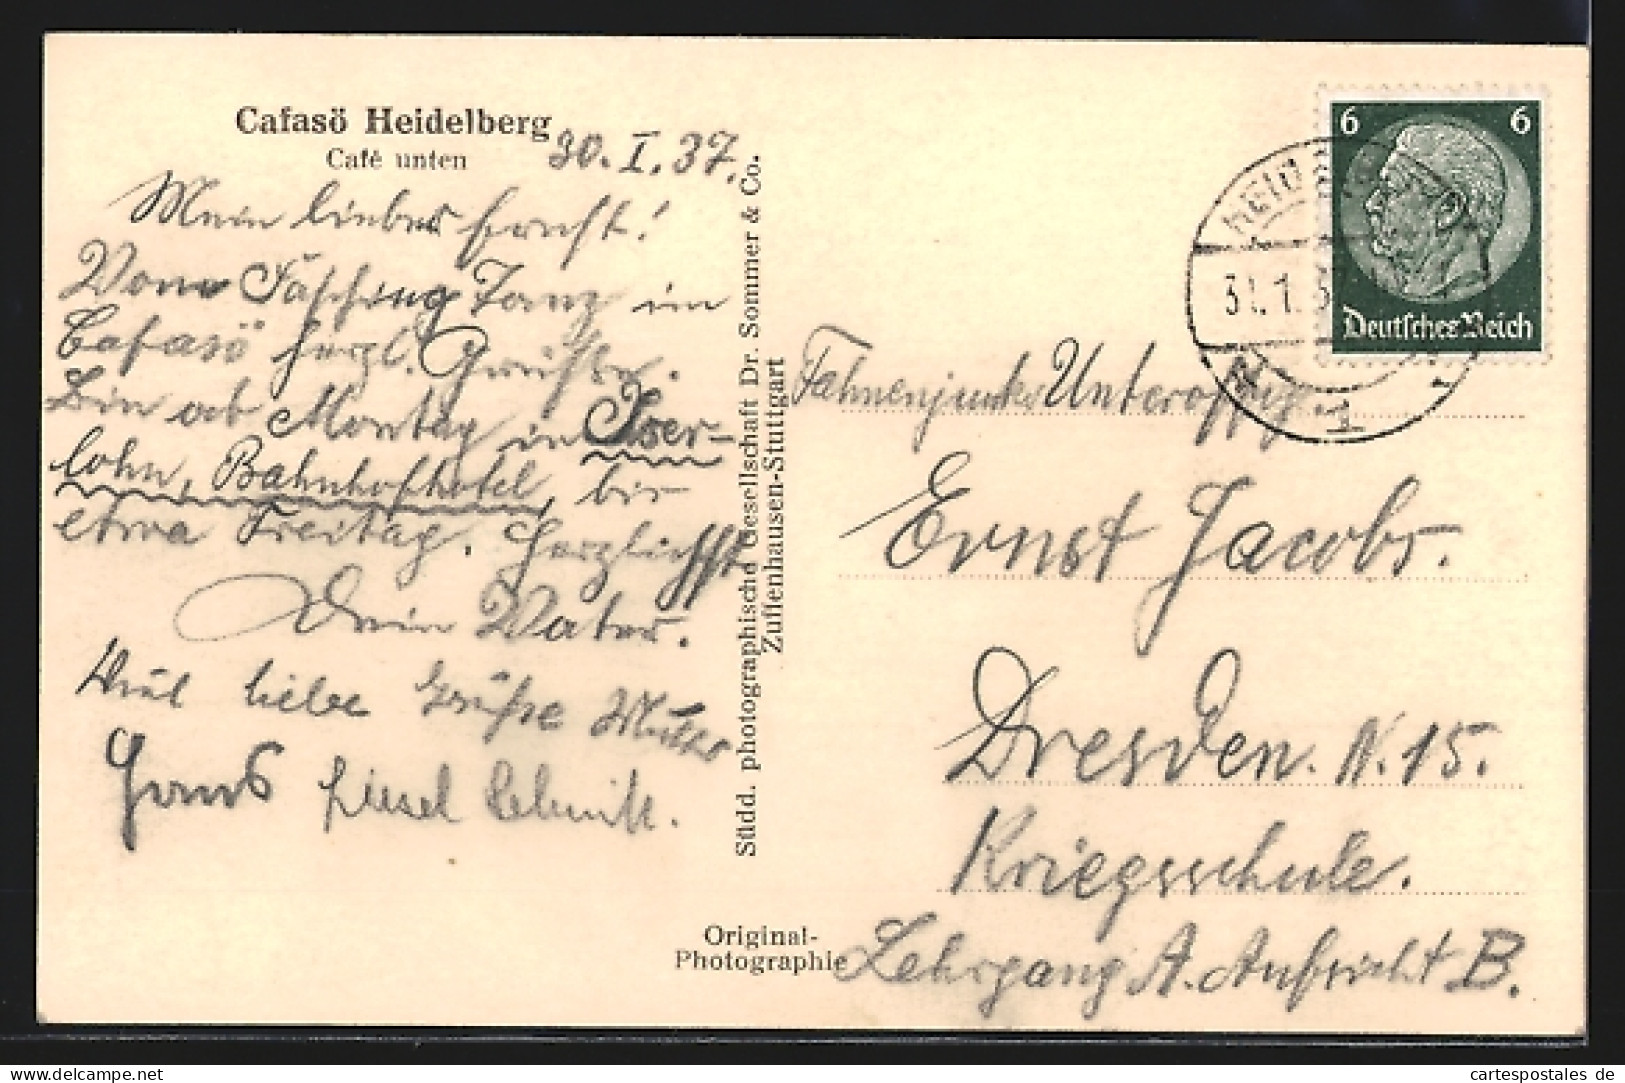 Cafasö Heidelberg
Café unten
30. I. 37.
Mein lieber Ernst!
Vom Fasching Tanz im
Cafasö herzl. Grüße.
Bin ab Montag in Iser-
lohn, Bahnhofhotel, bis
etwa Freitag. Herzlichst
Dein Vater.
Viel liebe Grüße Mutter
Hans Liesel Schmitt.
Südd. photographische Gesellschaft Dr. Sommer & Co.
Zuffenhausen-Stuttgart
Original-
Photographie
6 6
Deutsches Reich
31.1.3
1
Fahnenjunker Unteroffz.
Ernst Jacobs.
Dresden. N. 15.
Kriegsschule.
Lehrgang A. Aufsicht B.
cartespostales de
www.delcampe.net